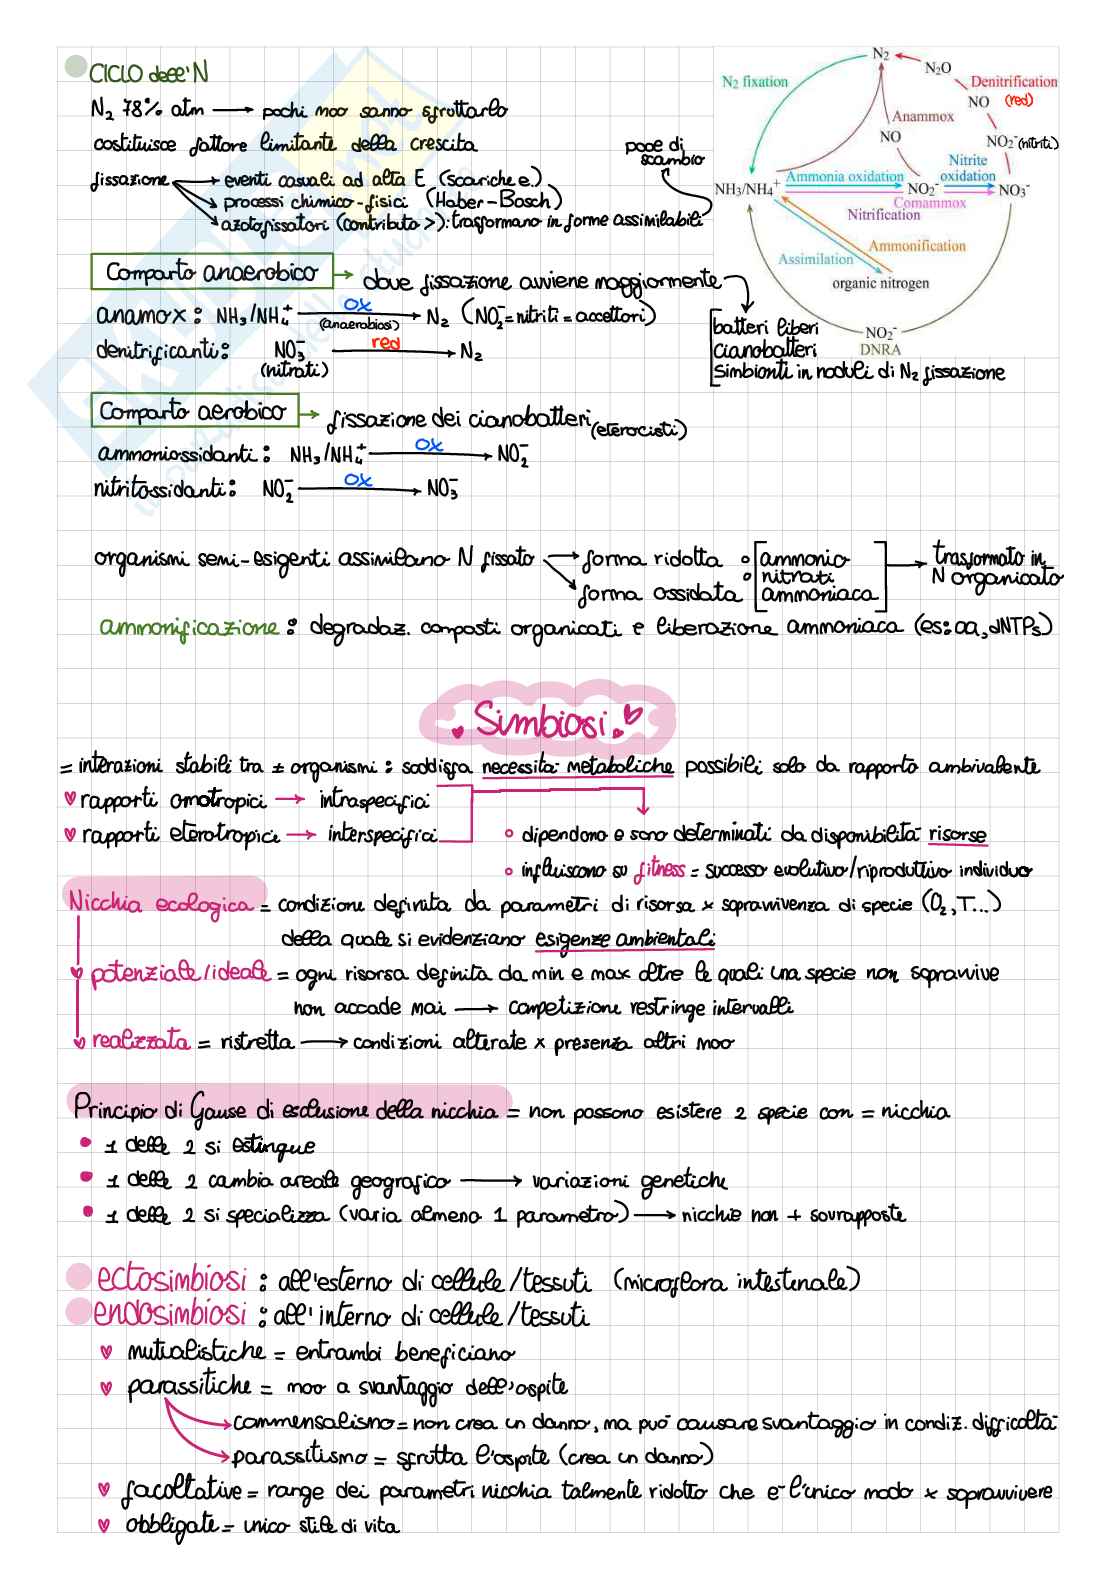 CICLO dell'N
N₂ 78% atm → pochi moo sanno sfruttarlo
costituisce fattore limitante della crescita
fissazione → eventi casuali ad alta E (scariche e.)
→ processi chimico-fisici (Haber-Bosch)
→ azotofissatori (contributo >): trasformano in forme assimilabili
pool di
scambio
N₂
N₂O
N₂ fixation
Denitrification
NO (red)
Anammox
NO
NO₂⁻ (nitriti)
Nitrite
Ammonia oxidation
oxidation
NH3/NH₄⁺
NO₂⁻
NO₃⁻
Comammox
Nitrification
Ammonification
Assimilation
organic nitrogen
NO₂⁻
DNRA
Comparto anaerobico → dove fissazione avviene maggiormente
batteri liberi
cianobatteri
simbionti in noduli di N₂ fissazione
anamox: NH₃/NH₄⁺ ox (anaerobiosi) → N₂ (NO₂⁻=nitriti=accettori)
denitrificanti: NO₃⁻ red → N₂
(nitrati)
Comparto aerobico → fissazione dei cianobatteri (eterocisti)
ammoniossidanti: NH₃/NH₄⁺ ox → NO₂⁻
nitritossidanti: NO₂⁻ ox → NO₃⁻
organismi semi-esigenti assimilano N fissato → forma ridotta ∘ [ammonio
→ forma ossidata ∘ nitrati
ammoniaca] → trasformato in
N organicato
ammonificazione: degradaz. composti organicati e liberazione ammoniaca (es: aa, dNTPs)
Simbiosi
= interazioni stabili tra ± organismi: soddisfa necessità metaboliche possibili solo da rapporto ambivalente
♥ rapporti omotropici → intraspecifici
♥ rapporti eterotropici → interspecifici
∘ dipendono e sono determinati da disponibilità risorse
∘ influiscono su fitness = successo evolutivo/riproduttivo individuo
Nicchia ecologica = condizione definita da parametri di risorsa × sopravvivenza di specie (O₂, T...)
della quale si evidenziano esigenze ambientali
♥ potenziale/ideale = ogni risorsa definita da min e max oltre le quali una specie non sopravvive
non accade mai → competizione restringe intervalli
♥ realizzata = ristretta → condizioni alterate × presenza altri moo
Principio di Gause di esclusione della nicchia = non possono esistere 2 specie con = nicchia
• 1 delle 2 si estingue
• 1 delle 2 cambia areale geografico → variazioni genetiche
• 1 delle 2 si specializza (varia almeno 1 parametro) → nicchie non + sovrapposte
ectosimbiosi: all'esterno di cellule/tessuti (microflora intestinale)
endosimbiosi: all'interno di cellule/tessuti
♥ mutualistiche = entrambi beneficiano
♥ parassitiche = moo a svantaggio dell'ospite
→ commensalismo = non crea un danno, ma può causare svantaggio in condiz. difficoltà
→ parassitismo = sfrutta l'ospite (crea un danno)
♥ facoltative = range dei parametri nicchia talmente ridotto che è l'unico modo × sopravvivere
♥ obbligate = unico stile di vita